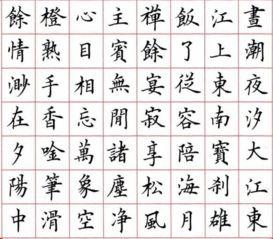 晝潮夜汐大江東
江上東南賓剎雄
飯了從容陪海月
禪餘宴寂享松風
主賓無閒諸塵净
心目相忘萬象空
橙熟手香唫筆滑
餘情渺在夕陽中